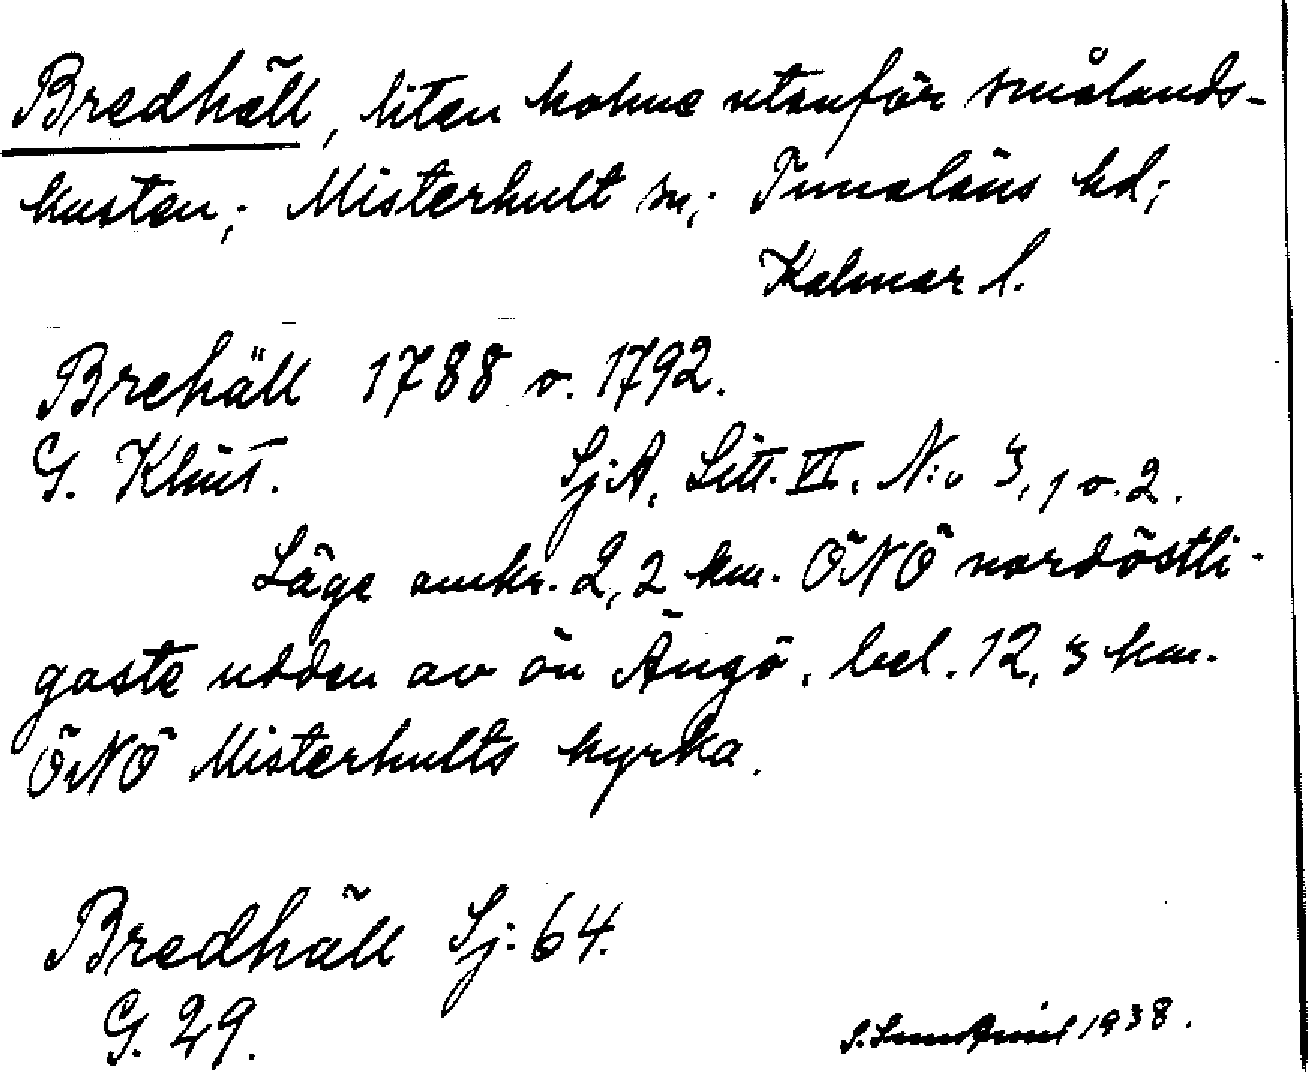 Bredhäll, liten holme utanför smålands-
kusten; Misterhult sn; Tunaläns hd;
Kalmar l.
Brehäll 1788 o. 1792.
G. Klint. Sj:A, Litt. VI, N:o 3, 1 o. 2.
Läge omkr. 2,2 km. ÖNÖ nordöstli-
gaste udden av ön Ängö, bel. 12,3 km.
ÖNÖ Misterhults kyrka.
Bredhäll Sj: 64.
G. 29.
1938.